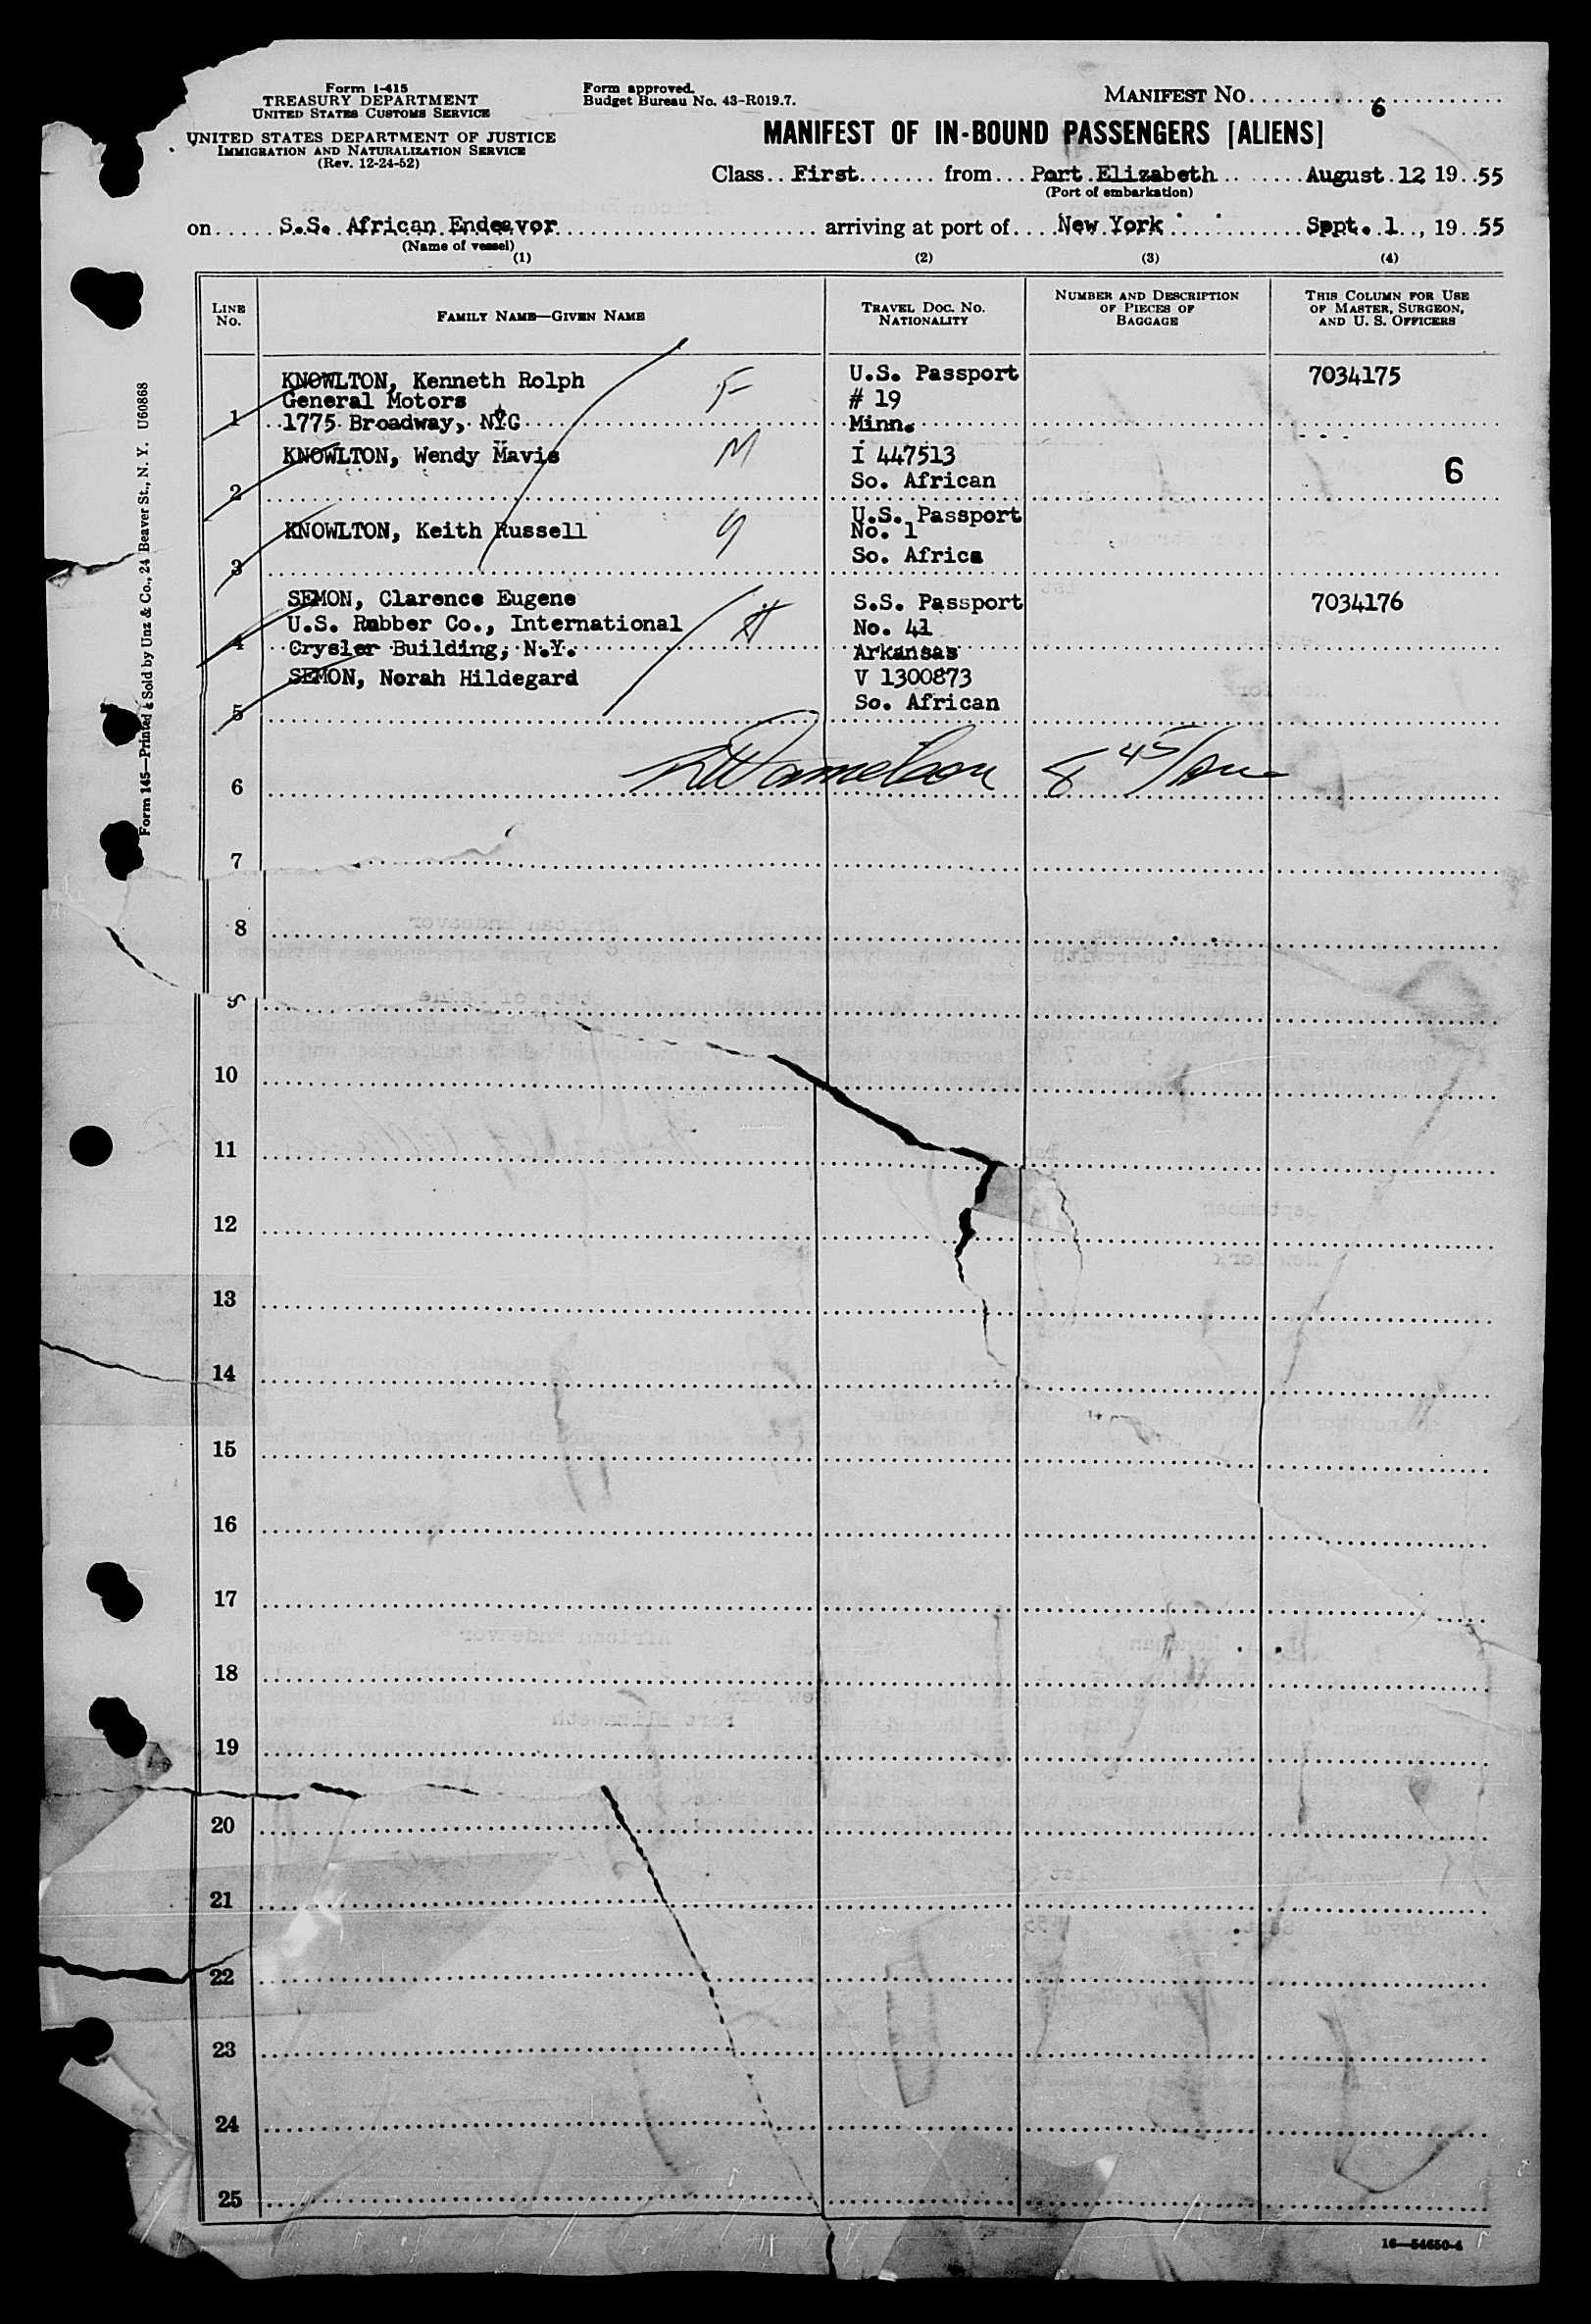 Form I-415
TREASURY DEPARTMENT
UNITED STATES CUSTOMS SERVICE
UNITED STATES DEPARTMENT OF JUSTICE
IMMIGRATION AND NATURALIZATION SERVICE
(Rev. 12-24-52)
Form approved.
Budget Bureau No. 43-R019.7.
MANIFEST NO. 6
MANIFEST OF IN-BOUND PASSENGERS [ALIENS]
Class First from Port Elizabeth August 12 19 55
(Port of embarkation)
on S.S. African Endeavor arriving at port of New York Sept. 1, 19 55
(Name of vessel)
(1) (2) (3) (4)
LINE NO.
FAMILY NAME—GIVEN NAME
TRAVEL DOC. NO. NATIONALITY
NUMBER AND DESCRIPTION OF PIECES OF BAGGAGE
THIS COLUMN FOR USE OF MASTER, SURGEON, AND U. S. OFFICERS
KNOWLTON, Kenneth Rolph F U.S. Passport 7034175
General Motors # 19
1 1775 Broadway, NYC Minn.
KNOWLTON, Wendy Mavis M I 447513 6
2 So. African
U.S. Passport
KNOWLTON, Keith Russell No. 1
3 So. Africa
SEMON, Clarence Eugene S.S. Passport 7034176
U.S. Rubber Co., International No. 41
4 Crysler Building, N.Y. Arkansas
SEMON, Norah Hildegard V 1300873
5 So. African
6 8 45/
7
8
9
10
11
12
13
14
15
16
17
18
19
20
21
22
23
24
25
16—54650-4
Form 145—Printed & Sold by Unz & Co., 24 Beaver St., N. Y. U60868